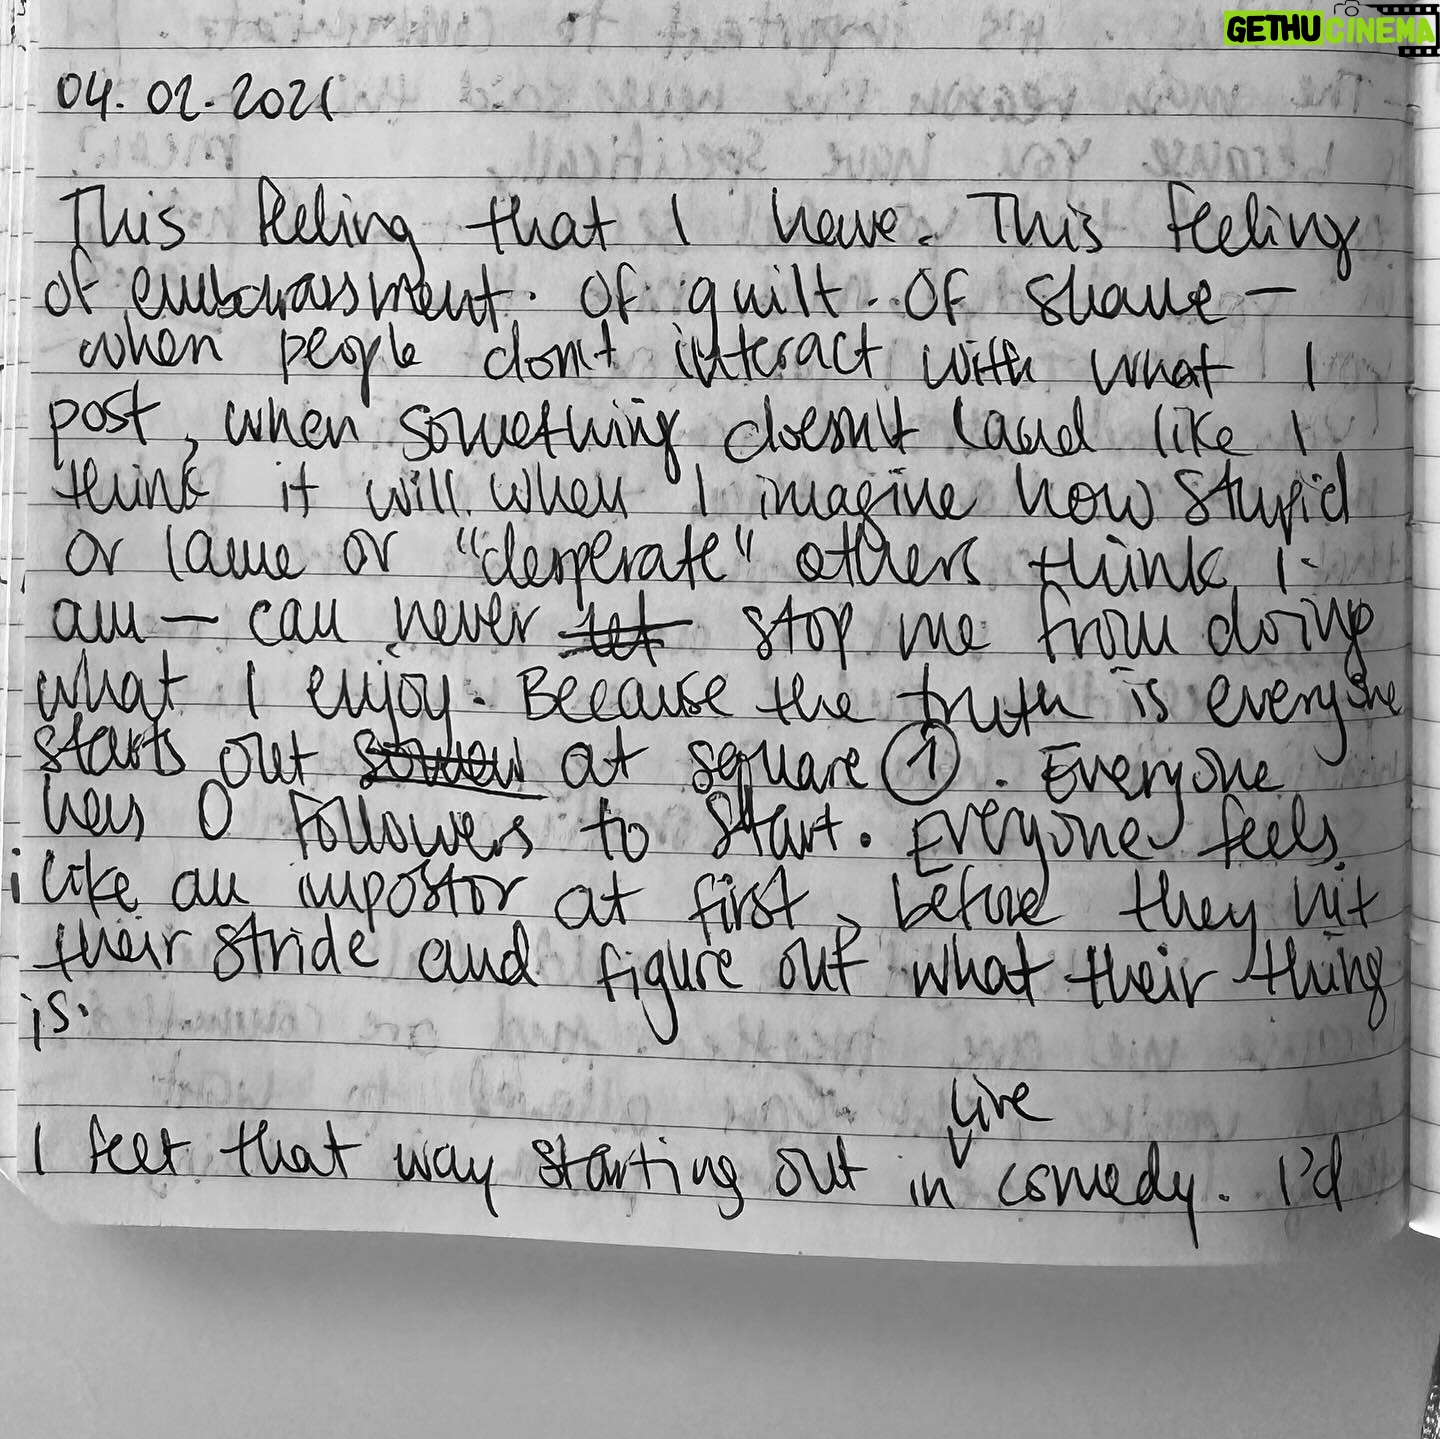 GETHU CINEMA
04.02.2021
This feeling that I have. This feeling
of embarrassment. Of guilt. Of shame —
when people don't interact with what I
post, when something doesn't land like I
think it will. When I imagine how stupid
or lame or "desperate" others think I
am — can never let stop me from doing
what I enjoy. Because the truth is everyone
starts out at square 1. Everyone
has 0 followers to start. Everyone feels
like an impostor at first, before they hit
their stride and figure out what their thing
is.
live
I felt that way starting out in comedy. I'd